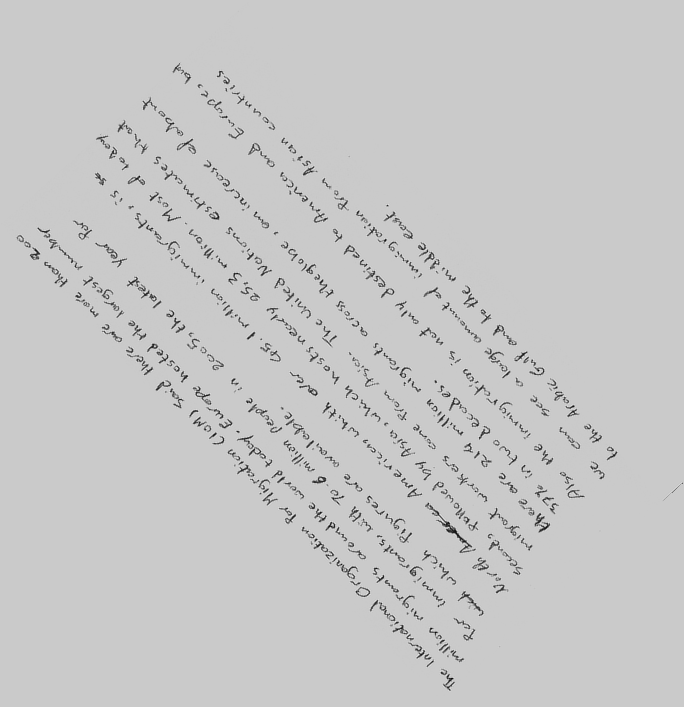 The International Organization for Migration (IOM) said there are more than 200
million migrants around the world today. Europe hosted the largest number
for immigrants, with 70.6 million people in 2005, the latest year for
wich which figures are available.
North America, whith over 45.1 million immigrants, is se
second, followed by Asia, which hosts nearly 25,3 million. Most of today
migrant workers come from Asia. The United Nations estimates that
there are 214 million migrants across theglobe, an increase of about
37% in two decades.
Also the immigration is not only destined to America and Europe, but
we can see a large amount of immigration from Asian countries
to the Arabic Gulf and to the middle east.